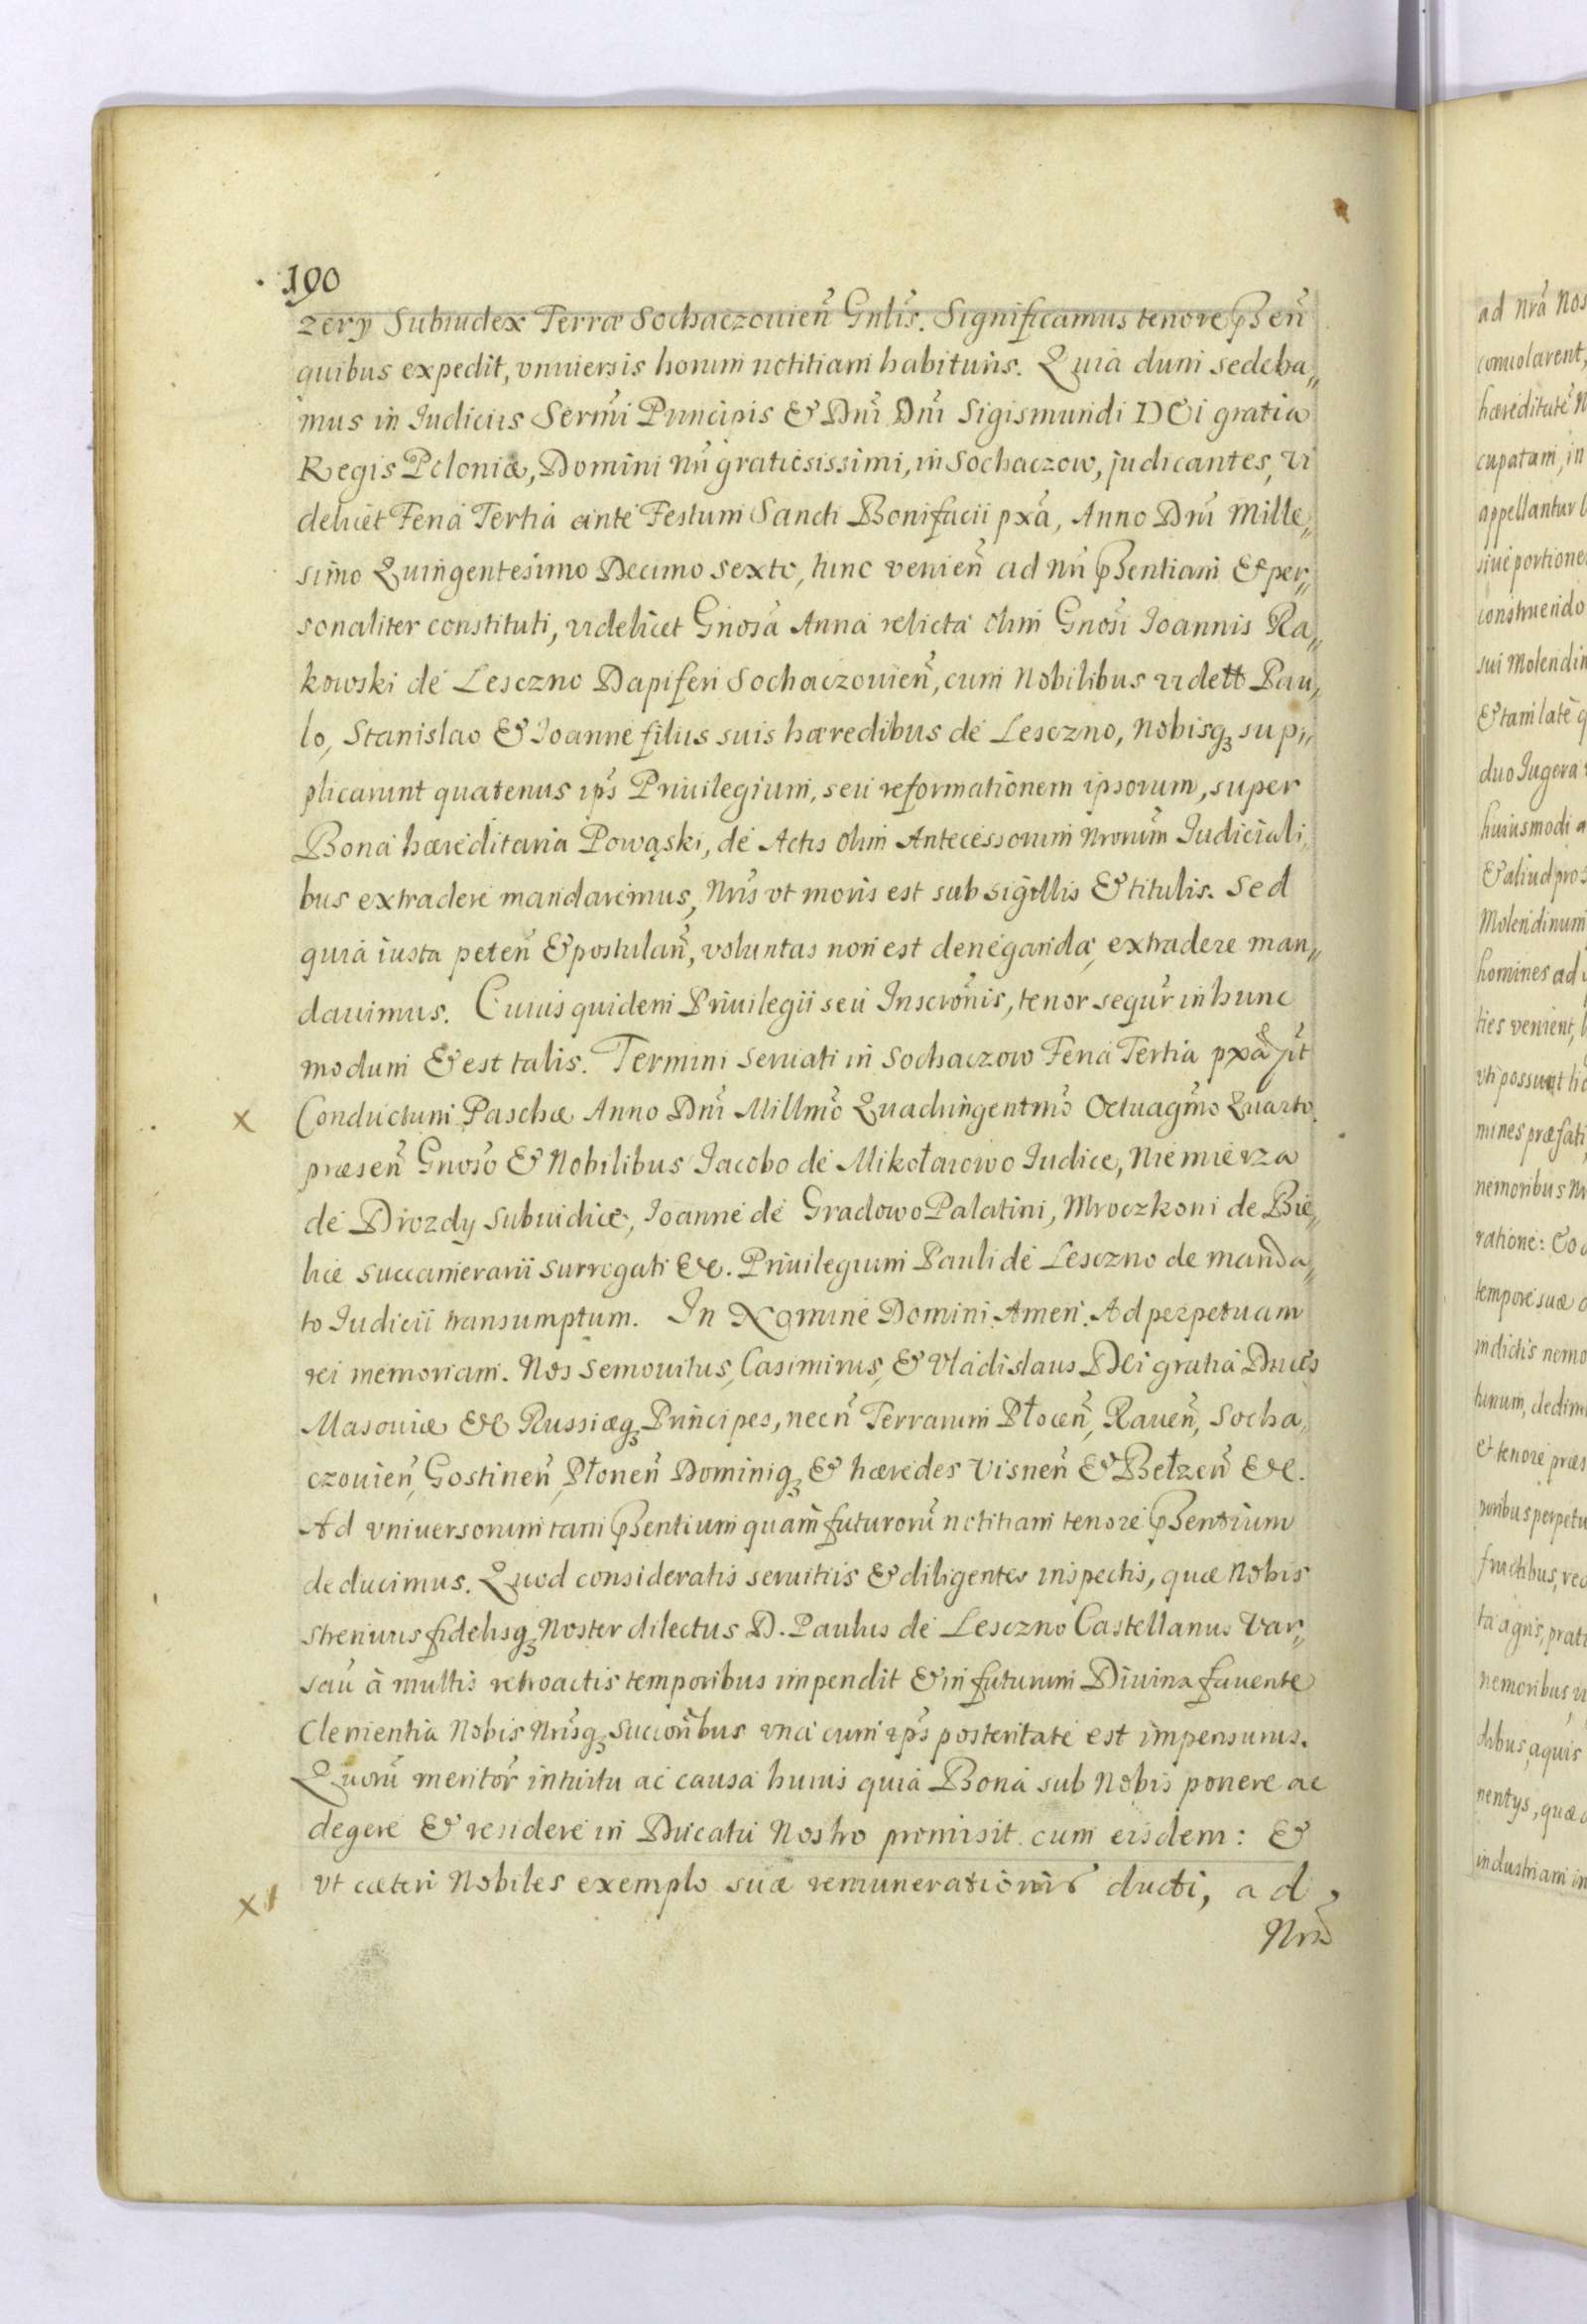 190
zery Subiudex Terræ Sochaczouień Gnlis̃. Significamus tenore p̃sen̄
quibus expedit, vniuersis horum notitiam habituris. Quia dum sedeba„
mus in Iudiciis Sermi̇̃ Principis & Dni̇̃ Dni̇̃ Sigismundi DEi gratia
Regis Poloniæ, Domini nri̇̃ gratiosissimi, in Sochaczow, judicantes, vi
delicet Feria Tertia ante Festum Sancti Bonifacii pxã, Anno Dni̇̃ Mille„
simo Quingentesimo Decimo sexto, hinc venień ad nrã p̃sentiam & per„
sonaliter constituti, videlicet Gnosã Anna relicta olim Gnosĩ Ioannis Ra„
kowski de Lesczno Dapiferi Sochaczouień, cum Nobilibus vidett Pau„
lo, Stanislao & Ioanne filiis suis hæredibus de Lesczno, Nobisqꝫ sup„
plicarunt quatenus ip̃s Priuilegium, seu reformationem ipsorum, super
Bona hæreditaria Powąski, de Actis olim Antecessorum Nrorũm Iudiciali„
bus extradere mandaremus, Nris̃ vt moris est sub sigillis & titulis. Sed
quia iusta peteñ & postulañ, voluntas non est deneganda, extradere man„
dauimus. Cuius quidem Priuilegii seu Inscroñis, tenor sequr̃ in hunc
modum & est talis. Termini seruati in Sochaczow Feria Tertia pxã pt̃
Conductum Paschæ Anno Dni̇̃ Millmõ Quadringentmõ Octuagmõ Quarto
præseñ Gnosõ & Nobilibus Iacobo de Mikołaiowo Iudice, Niemierza
de Drozdy Subiudice, Ioanne de Gradowo Palatini, Mroczkoni de Bie„
lice succamerarii surrogati &c. Priuilegium Pauli de Lesczno de manda„
to Iudicii transumptum. In Nomine Domini Amen. Ad perpetuam
rei memoriam. Nos Semouitus, Casimirus, & Vladislaus DEi gratia Duces
Masouiæ &c Russiæqꝫ Principes, necñ Terrarum Płoceñ, Raueñ, Socha„
czouień, Gostineñ, Płoneñ Dominiqꝫ & hæredes Visneñ & Bełzeñ &c.
Ad vniuersorum tam p̃sentium quam futurorũ notitiam tenore p̃sentium
deducimus. Quod consideratis seruitiis & diligenter inspectis, quæ Nobis
strenuus fidelisqꝫ Noster dilectus D. Paulus de Lesczno Castellanus Var„
sau̇̃ à multis retroactis temporibus impendit & in futurum Diuina fauente
Clementia Nobis Nrisq̃ꝫ succorĩbus vna cum ip̃s posteritate est impensurus.
Quorũ meritor̃ intuitu ac causa huius quia Bona sub Nobis ponere ac
degere & residere in Ducatu Nostro promisit cum eisdem: &
vt cæteri Nobiles exemplo suæ remunerationis ducti, ad
Nrã
ad nrã Nos
conuolarent,
hæreditatẽ N
cupatam, in
appellantur
siue portione
construendo
sui Molendin
& tam latè q
duo Iugera
huiusmodi a
& aliud pros
Molendinum
homines ad
ties venient,
vti possunt
mines præfati
nemoribus
ratione: Eo
tempore suæ
in dictis nemo
dedim
et tenore præs
fructibus,
ta agris, prati
nemoribus
aquis
quæ
industriam in